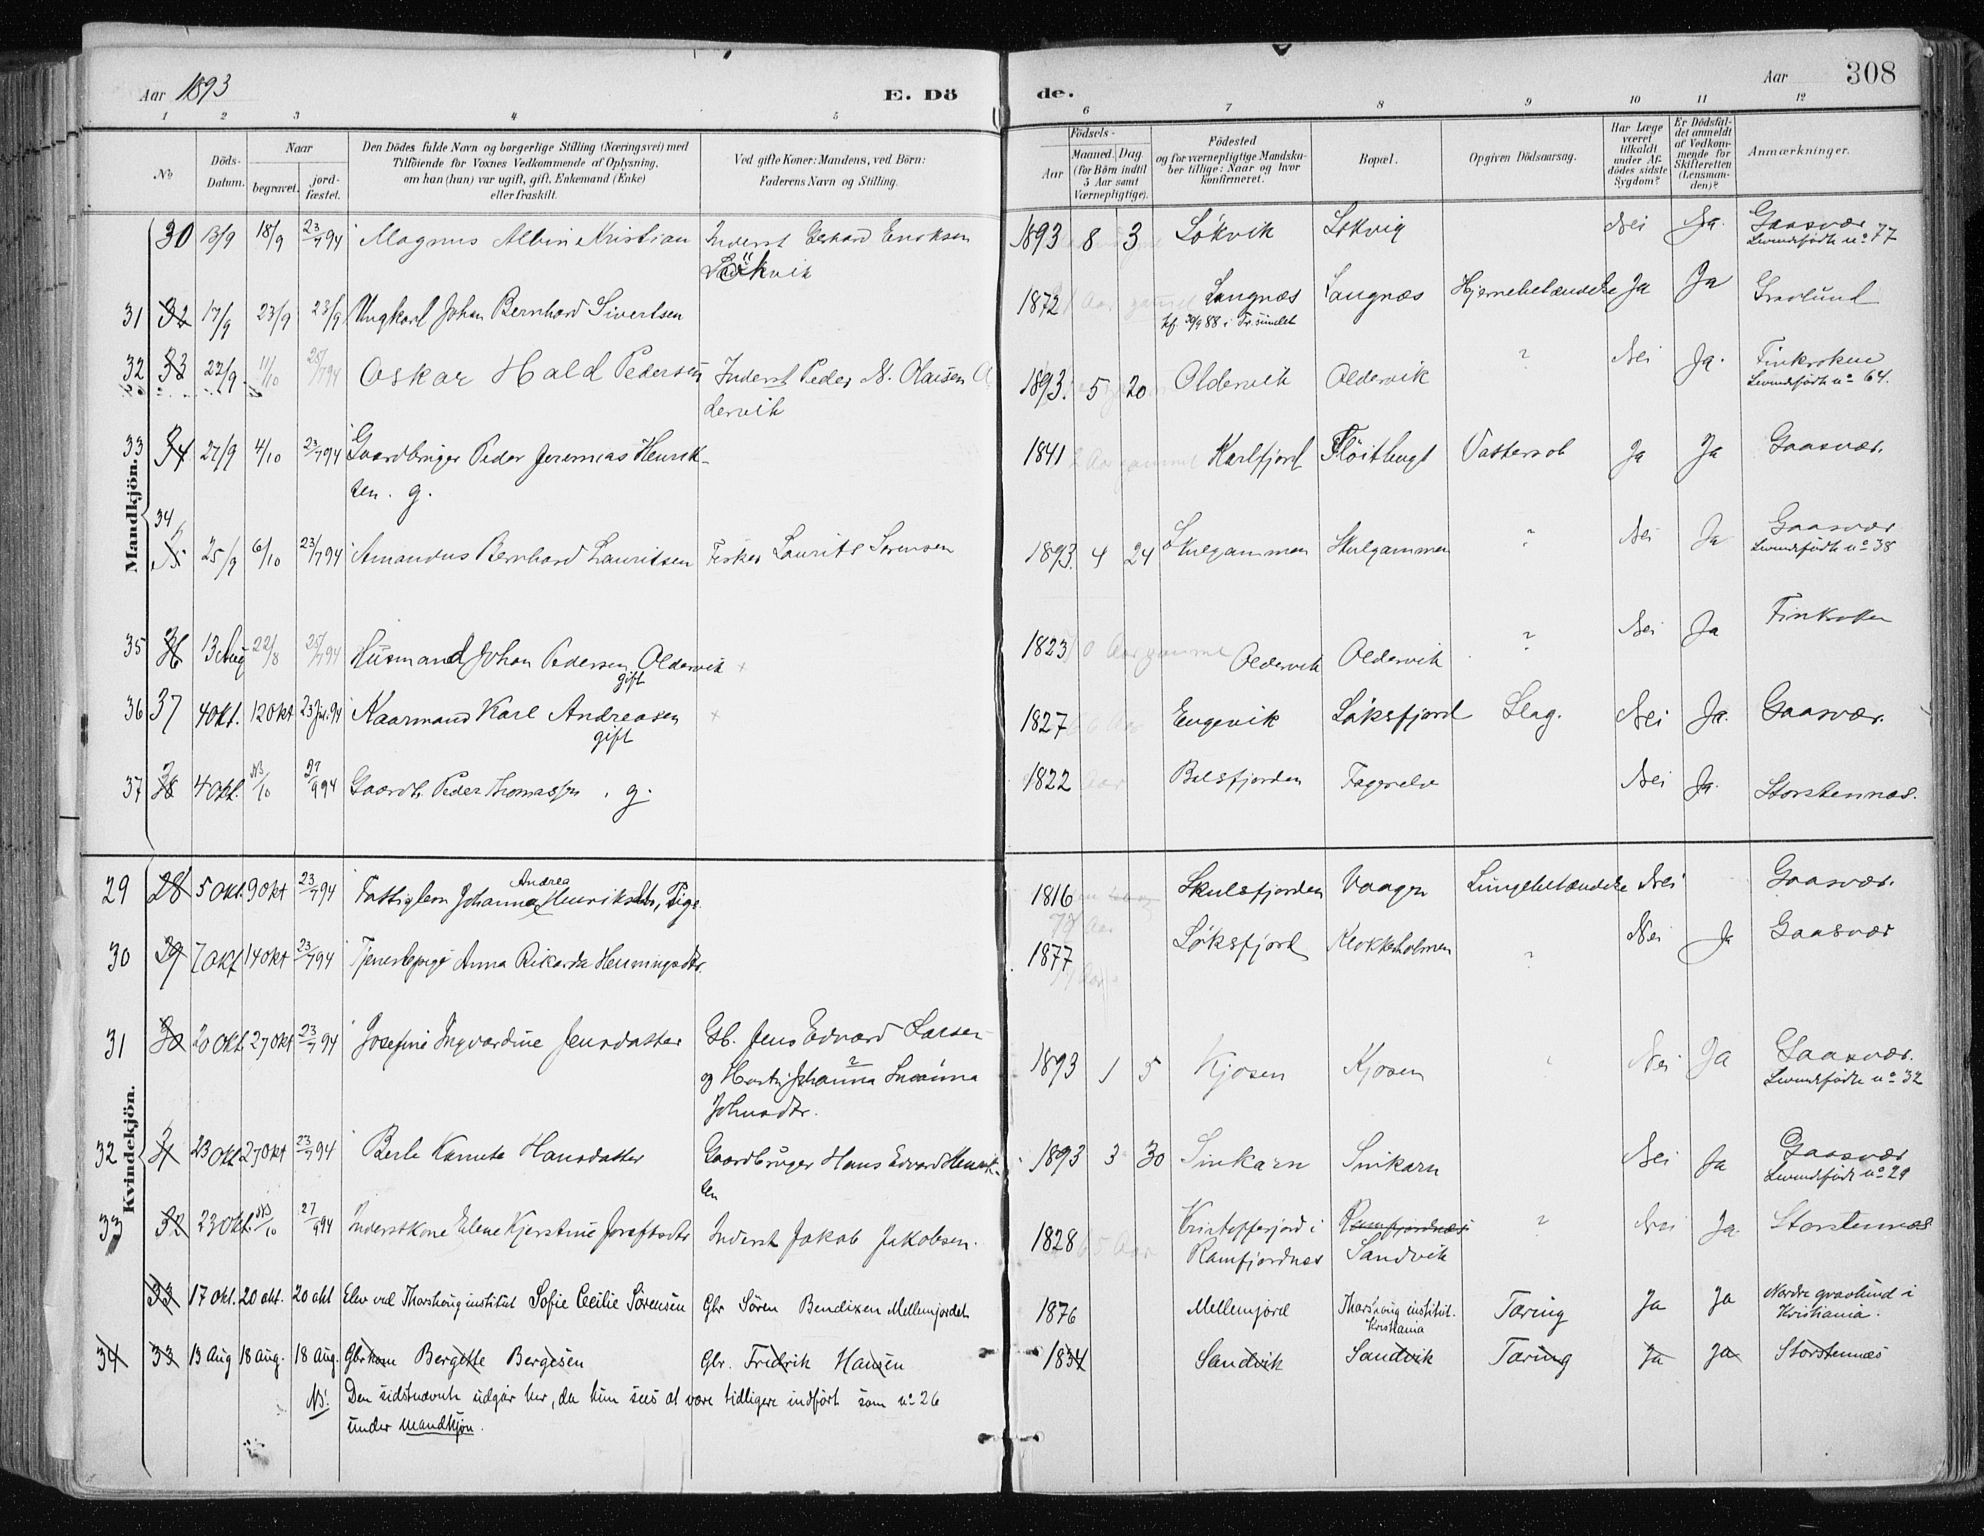 Aar 1893 E. Dö de. Aar 308
1 2 3 4 5 6 7 8 9 10 11 12
№ Döds-Datum. Naar begravet. jord-fæstet. Den Dödes fulde Navn og borgerlige Stilling (Næringsvei) med Tilföiende for Voxnes Vedkommende af Oplysning, om han (hun) var ugift, gift, Enkemand (Enke) eller fraskilt. Ved gifte Koner: Mandens, ved Börn: Faderens Navn og Stilling. Födsels- Aar Maaned. Dag. (for Börn indtil 5 Aar samt Værnepligtige). Födested og for værnepligtige Mandskaber tillige: Naar og hvor konfirmeret. Bopæl. Opgiven Dödsaarsag. Har Læge været tilkaldt under Afdödes sidste Sygdom? Er Dödsfaldet anmeldt af Vedkommende for Skifteretten (Lensmanden)? Anmærkninger.
Mandkjön.
30 13/9 18/9 23/7 94 Magnus Albin Kristian Inderst Gerhard Eriksen 1893 8 3 Lökvik Lökvig Nei Ja. Gaasvær
Lökvik Levendefødte no 77
31 32 17/9 23/9 23/9 Ungkarl Johan Bernhard Sivertsen 1872 Langnæs Langnæs Hjernebetændelse Ja Ja Gravlund
32 33 22/9 11/10 25/7 94 Oskar Hald Pedersen Inderst Peder N. Olaisen Ol 1893. 5 20 Oldervik Oldervik ? Nei Ja. Finkroken
dervik Levendefödte no 64.
33 34 21/9 4/10 23/7 94 Gaardbruger Peder Jeremias Henrik- 1841 Karlfjord Flöitbugt Vattersot Ja Ja Gaasvær.
sen. g.
34 25/9 6/10 23/7 94 Amandus Bernhard Lauritsen Fisker Laurits Sörensen 1893. 4 24 Skulgammen Skulgammen ? Nei Ja Gaasvær
Levendefödte no 38
35 36 13 Aug 22/8 25/7 94 Husmand Johan Pedersen Oldervik 1823 Oldervik Oldervik ? Nei Ja Finkroken
gift
36 37 4 Okt. 12 Okt 23 Jul. 94 Kaarmand Karl Andreasen 1827 Engevik Löksfjord Slag. Nei Ja. Gaasvær.
gift
37 38 4 Okt. 13/10 27/9 94 Gaardb. Peder Thomassen. g. 1822 Balsfjorden Fagerelv Nei Ja. Storstennæs.
Kvindekjön.
29 28 5 Okt. 9 Okt 23/7 94 Fattiglem Johanna Andrea Henriksdtr, Pige 1816 Skulsfjorden Vaagen Lungebetændelse Nei Gaasvær.
30 29 7 Okt 14 Okt 23/7 94 Tjenestepige Anna Rikarda Henningsdtr. 1877 Löksfjord Klokkeholmen ? Nei Ja Gaasvær
31 30 20 Okt. 27 Okt 23/7 94 Josefine Ingvardine Jensdatter Gb. Jens Edvard Larsen 1893 1 5 Kjosen Kjosen Nei Ja Gaasvær.
og Hustru Johanna Susanna Levendefödte no 32
Johnsdtr.
32 31 23 Okt 27 Okt 23/7 94 Berle Kamuta Hansdatter Gaardbruger Hans Edvard Henrik- 1893 3 30 Sinkarn Sinkarn Nei Ja Gaasvær
sen Levendefödte no 29
33 32 23 Okt. /10 27/9 94 Inderstkone Elene Kjerstine Josefsdtr Inderst Jakob Jakobsen. 1828 Kristofferjord i Ramfjordnæs ? Nei Ja Storstennæs
Ramfjordnæs Sandvik
33 17 Okt. 20 okt. 20 okt Elev ved Thorshaug institut Sofie Cecilie Sörensen Gbr Sören Bendixen Mellemjordet 1876 Mellemjord Thorshaug institut. Kristiania Tæring Ja Ja Nordre gravlund i Kristiania.
34 33 13 Aug 18 aug. 18 Aug. Gbrkone Bergitte Bergesen Gbr. Fredrik Hansen 1834 Sandvik Sandvik Tæring Ja Ja Storstennæs
NB: Den sidstnævnte udgår her, da hun sees at være tidligere indfört som no 26
under Mandkjön.